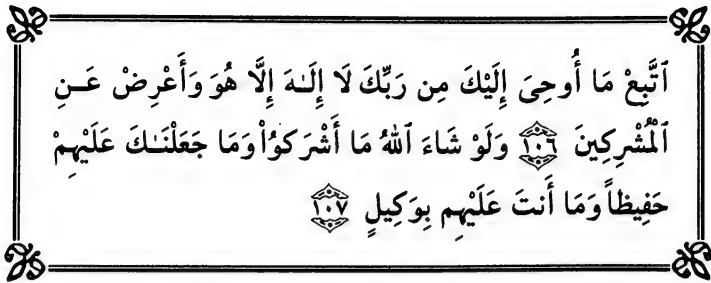 ٱتَّبِعْ مَا أُوحِىَ إِلَيْكَ مِن رَبِّكَ لَا إِلَـٰهَ إِلَّا هُوَ وَأَعْرِضْ عَـنِ
ٱلْمُشْرِكِينَ ۝١٠٦ وَلَوْ شَاءَ ٱللهُ مَا أَشْرَكُواْ وَمَا جَعَلْنَـٰكَ عَلَيْهِمْ
حَفِيظاً وَمَا أَنتَ عَلَيْهِم بِوَكِيلٍ ۝١٠٧